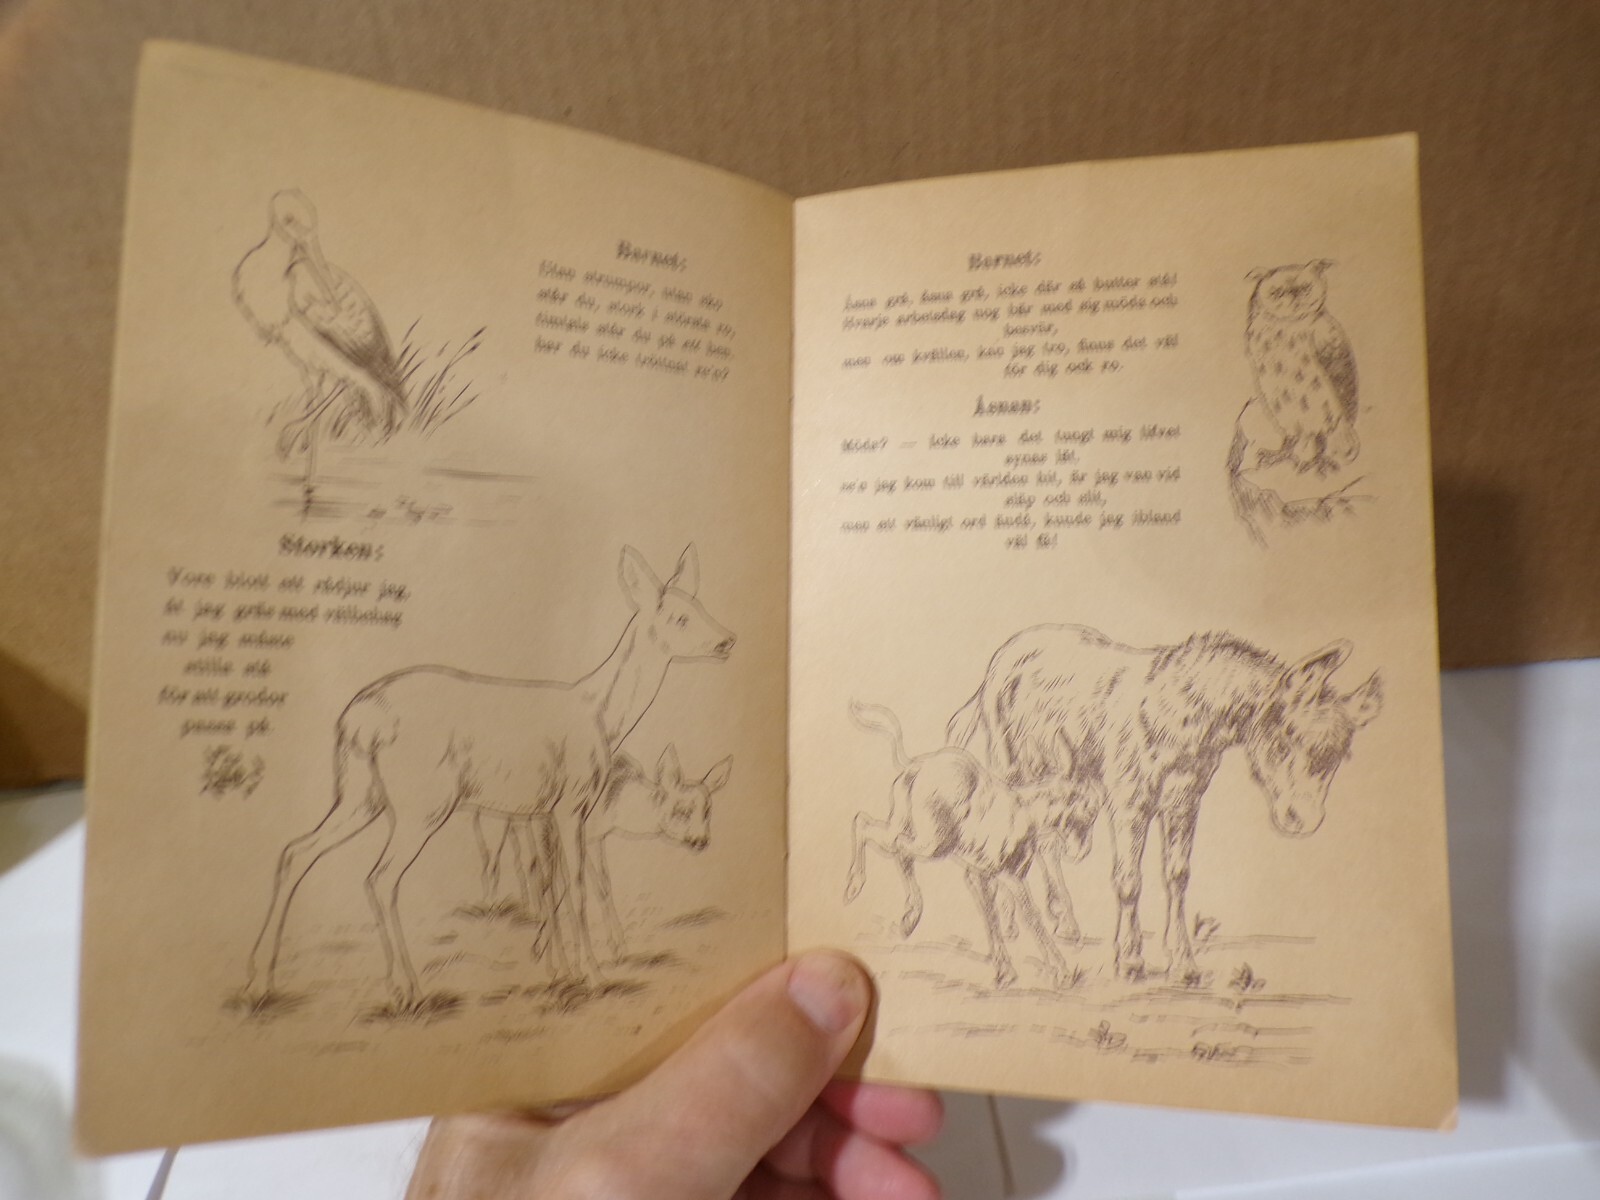 Barnet:
Utan strumpor, utan sko
står du, stork i största ro,
timtals står du på ett ben,
har du icke tröttnat re'n?
Storken:
Vore blott ett rådjur jag,
åt jag gräs med välbehag
nu jag måste
stilla stå
för att grodor
passa på.
Barnet:
Åsna grå, åsna grå, icke där så butter stå!
Hvarje arbetsdag nog bär med sig möde och
besvär,
men om kvällen, kan jag tro, finns det väl
för dig och ro.
Åsnan:
Möda? — icke bara det tungt mig lifvet
synes låt.
re'n jag kom till världen hit, är jag van vid
släp och slit,
men ett vänligt ord ändå, kunde jag ibland
väl få!